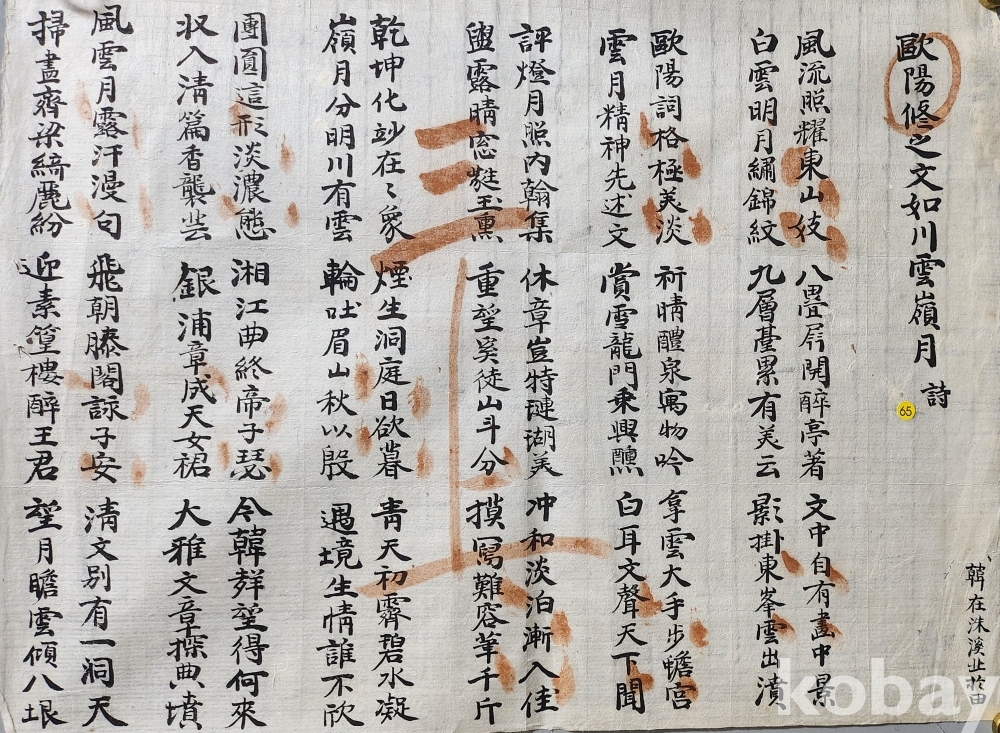 歐陽修之文如川雲嶺月 詩
65
風流照耀東山妓 八疊屛開醉亭著 文中自有畵中景
白雲明月繡錦紋 九層臺累有美云 影掛東峯雲出濆
歐陽詞格極美淡 祈晴醴泉寓物吟 拿雲大手步蟾宮
雲月精神先述文 賞雪龍門乘興醺 白耳文聲天下聞
評燈月照內翰集 休章豈特璉瑚美 冲和淡泊漸入佳
盥露晴窓蕤玉熏 重望奚徒山斗分 摸寫難容筆千斤
乾坤化竗在々衆 煙生洞庭日欲暮 靑天初霽碧水凝
嶺月分明川有雲 輪吐眉山秋以殷 遇境生情誰不欣
團圓這形淡濃態 湘江曲終帝子瑟 令韓群望得何來
収入淸篇香襲芸 銀浦章成天女裙 大雅文章探典墳
風雲月露汗漫句 飛朝滕閣詠子安 淸文別有一洞天
掃盡齊梁綺麗紛 迎素篁樓醉王君 望月瞻雲傾八垠
韓在洙溪
kobay